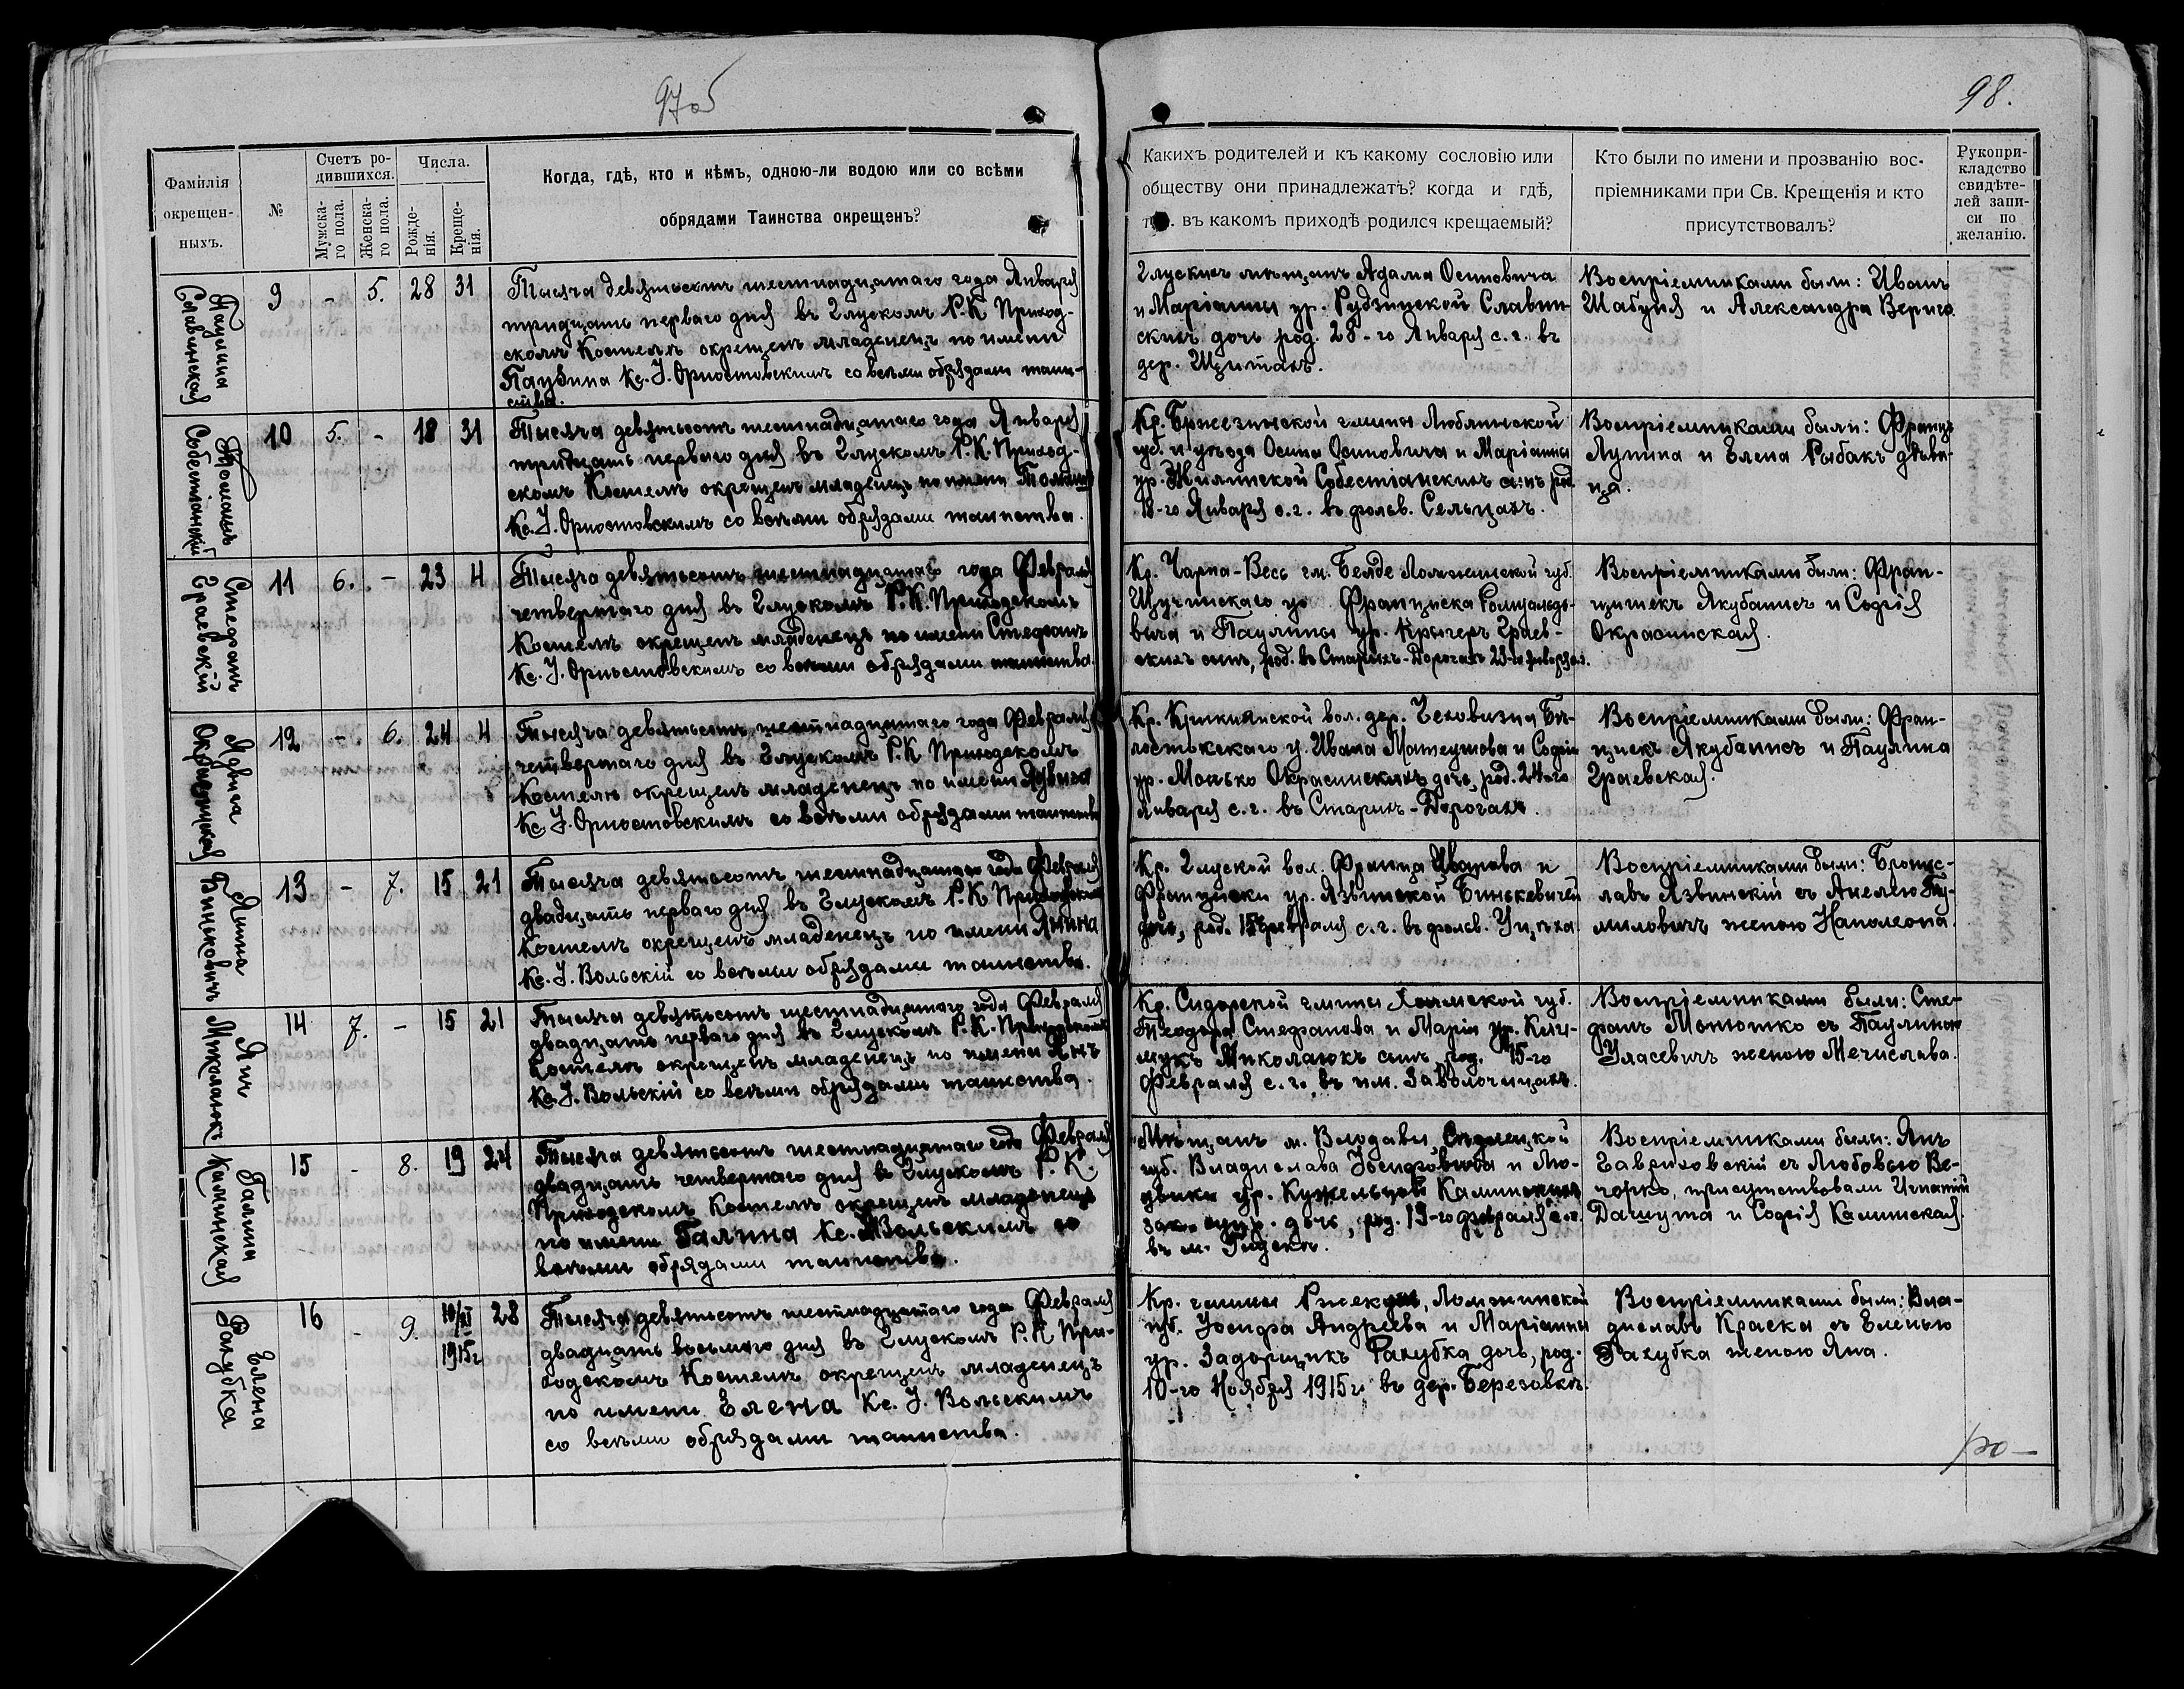 97об
98.
Фамилія
окрещен-
ныхъ.
№
Счетъ ро-
дившихся.
Мужска-
го пола.
Женска-
го пола.
Числа.
Рожде-
нія.
Креще-
нія.
Когда, гдѣ, кто и кѣмъ, одною-ли водою или со всѣми
обрядами Таинства окрещенъ?
Какихъ родителей и къ какому сословію или
обществу они принадлежатъ? когда и гдѣ,
т. въ какомъ приходѣ родился крещаемый?
Кто были по имени и прозванію вос-
пріемниками при Св. Крещенія и кто
присутствовалъ?
Рукопри-
кладство
свидѣте-
лей запи-
си по
желанію.
Паулина
Славинская
9 - 5. 28 31
Тысяча девятьсотъ шестнадцатаго года Января
тридцать перваго дня въ Глускомъ Р.К. Приход-
скомъ Костелѣ окрещенъ младенецъ по имени
Паулина Кс. І. Орностовскимъ со всѣми обрядами таин-
ства.
Глускихъ мѣщанъ Адама Осиповича
и Маріанны ур. Рудзинской Славин-
скихъ дочь род. 28-го Января с.г. въ
дер. Щитахъ.
Воспріемниками были: Иванъ
Шабуня и Александра Верига
Томашъ
Собестіанскій
10 5. - 18 31
Тысяча девятьсотъ шестнадцатаго года Января
тридцать перваго дня въ Глускомъ Р.К. Приход-
скомъ Костелѣ окрещенъ младенецъ по имени Томашъ
Кс. І. Орностовскимъ со всѣми обрядами таинства.
Кр. Бржезинской гмины Люблинской
губ. и уѣзда Осипа Осиповича и Маріанны
ур. Жилинской Собестіанскихъ сынъ род.
18-го Января с.г. въ фольв. Сельцахъ.
Воспріемниками были: Францъ
Лупина и Елена Рыбакъ дѣви-
ца.
Стефанъ
Граевскій
11 6. - 23 4
Тысяча девятьсотъ шестнадцатаго года Февраля
четвертаго дня въ Глускомъ Р.К. Приходскомъ
Костелѣ окрещенъ младенецъ по имени Стефанъ
Кс. І. Орностовскимъ со всѣми обрядами таинства.
Кр. Чарна-Весь гм. Белде Ломжинской губ.
Щучинскаго у. Франциска Ромуальдо-
вича и Паулины ур. Крыгеръ Граев-
скихъ сынъ, род. въ Старыхъ-Дорогахъ 23-го Января с.г.
Воспріемниками были: Фран-
цишекъ Якубанисъ и Софія
Окрасинская.
Ядвига
Окрасинская
12 - 6. 24 4
Тысяча девятьсотъ шестнадцатаго года Февраля
четвертаго дня въ Глускомъ Р.К. Приходскомъ
Костелѣ окрещенъ младенецъ по имени Ядвига
Кс. І. Орностовскимъ со всѣми обрядами таинства
Кр. вол. дер. Бѣ-
лостокскаго у. Ивана Матеушова и Софіи
ур. Монько Окрасинскихъ дочь, род. 24-го
Января с.г. въ Старыхъ-Дорогахъ.
Воспріемниками были: Фран-
цискъ Якубанисъ и Паулина
Граевская.
Янина
Биньковичъ
13 - 7. 15 21
Тысяча девятьсотъ шестнадцатаго года Февраля
двадцать перваго дня въ Глускомъ Р.К. Приходскомъ
Костелѣ окрещенъ младенецъ по имени Янина
Кс. І. Вольскій со всѣми обрядами таинства.
Кр. Глуской вол. Франца Иванова и
Француски ур. Язвинской Бинькевичей
дочь, род. 15 февраля с.г. въ фольв.
Воспріемниками были: Бронис-
лавъ Язвинскій съ Анелею Ту-
миловичъ женою Наполеона.
Янъ
Миколаюкъ
14 7. - 15 21
Тысяча девятьсотъ шестнадцатаго года Февраля
двадцать перваго дня въ Глускомъ Р.К. Приходскомъ
Костелѣ окрещенъ младенецъ по имени Янъ
Кс. І. Вольскій со всѣми обрядами таинства.
Кр. Сидорской гмины Холмской губ.
Теодора Стефанова и Маріи ур. Клим-
мукъ Миколаюкъ сынъ род. 15-го
Февраля с.г. въ им. Заволочицахъ.
Воспріемниками были: Сте-
фанъ Монюшко съ Паулиною
Уласевичъ женою Мечислава.
Галина
Калинская
15 - 8. 19 24
Тысяча девятьсотъ шестнадцатаго года Февраля
двадцать четвертаго дня въ Глускомъ Р.К.
Приходскомъ Костелѣ окрещенъ младенецъ
по имени Галина Кс. І. Вольскимъ со
всѣми обрядами таинства.
Мѣщанъ м. Влодавы Сѣдлецкой
губ. Владислава Іосифовича и Лю-
двики ур. Кужельцой Калинскихъ
зак. супр. дочь, род. 19-го февраля с.г.
въ м. Глускѣ.
Воспріемниками были: Янъ
Гавриховскій съ Любовью Ве-
чорко, присутствовали Игнатій
Дашута и Софія Калинская.
Елена
Ракубка
16 - 9. 10/XI 28
1915г
Тысяча девятьсотъ шестнадцатаго года Февраля
двадцать восьмого дня въ Глускомъ Р.К. При-
ходскомъ Костелѣ окрещенъ младенецъ
по имени Елена Кс. І. Вольскимъ
со всѣми обрядами таинства.
Кр. гмины Ржекунь, Ломжинской
губ. Іосифа Андреева и Маріанны
ур. Задорщикъ Ракубка дочь, род.
10-го Ноября 1915г. въ дер. Березовкѣ.
Воспріемниками были: Вла-
диславъ Краска съ Еленою
Ракубка женою Яна.